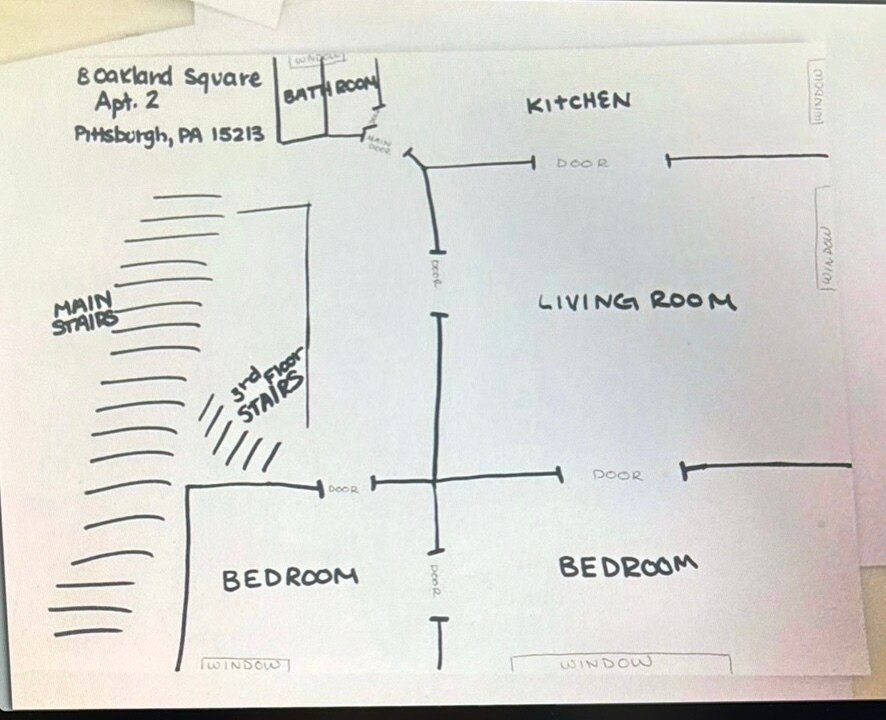 8 Oakland Square
Apt. 2
Pittsburgh, PA 15213
WINDOW
BATHROOM
DOOR
MAIN
DOOR
KITCHEN
WINDOW
DOOR
DOOR
WINDOW
LIVING ROOM
MAIN
STAIRS
3rd Floor
STAIRS
DOOR
DOOR
BEDROOM
DOOR
BEDROOM
WINDOW
WINDOW